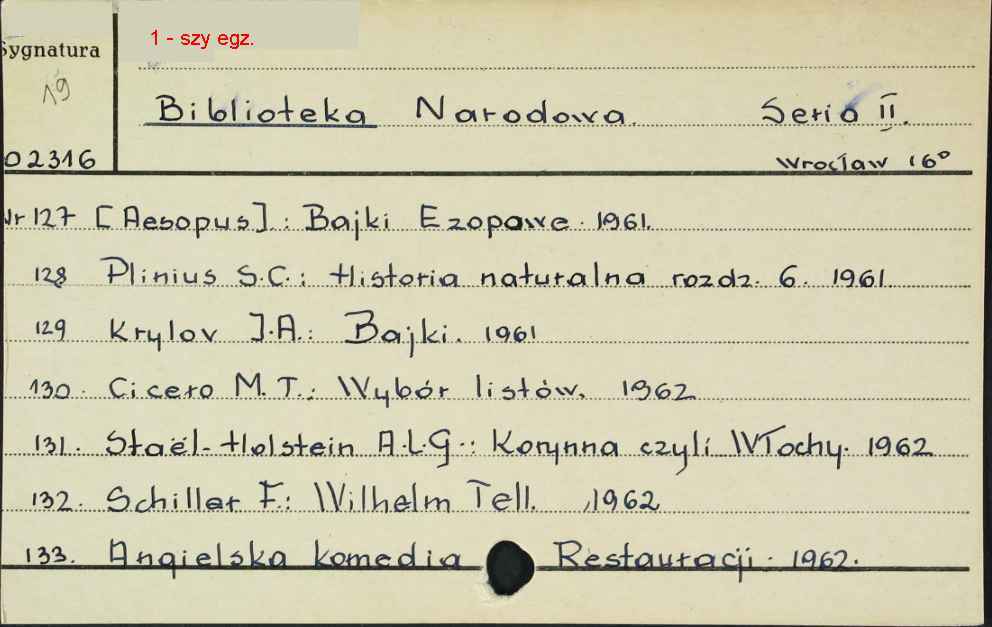 1 - szy egz.
Sygnatura
19
Biblioteka Narodowa. Seria II.
02316
Wrocław 16°
Nr 127 [Aesopus].: Bajki Ezopowe. 1961.
128 Plinius S.C.: Historia naturalna rozdz. 6. 1961.
129 Krylov I.A.: Bajki. 1961
130. Cicero M.T.: Wybór listów. 1962
131. Staël-Holstein A.L.G.: Korynna czyli Włochy. 1962
132. Schiller F.: Wilhelm Tell. 1962
133. Angielska komedia Restauracji. 1962.